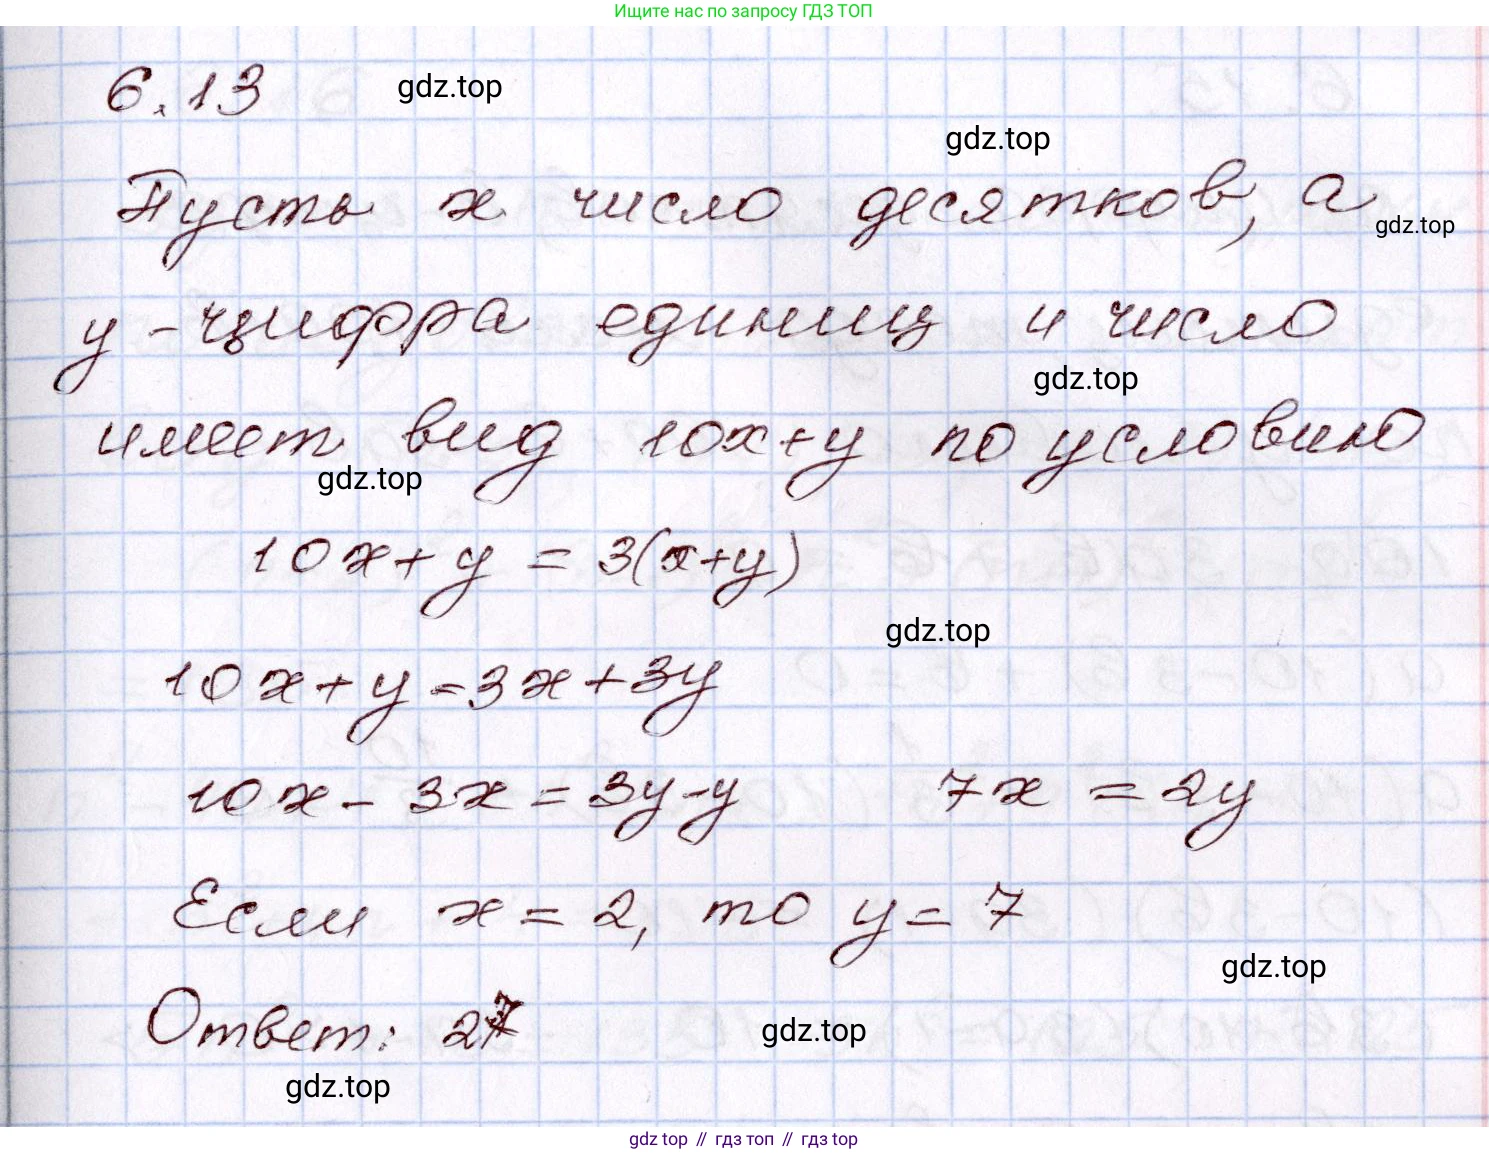 Ищите нас по запросу ГДЗ ТОП
6.13 gdz.top
gdz.top
Пусть x число десятков, а
gdz.top
y - цифра единиц и число
gdz.top
имеет вид 10x+y по условию
gdz.top
10x+y = 3(x+y)
gdz.top
10x+y=3x+3y
10x-3x=3y-y 7x=2y
Если x=2, то y=7
gdz.top
Ответ: 27 gdz.top
gdz.top
gdz top // гдз топ // gdz top